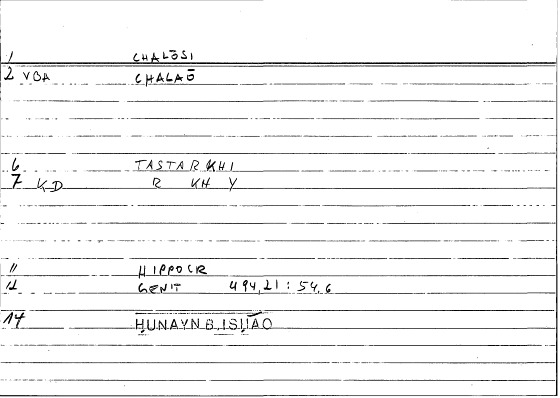 1 CHALŌSI
2 VBA CHALAŌ
6 TASTARKHI
7 KD R KH Y
11 HIPPOCR
12 GENIT 494,21 : 54,6
14 ḤUNAYN B. ISḤĀQ